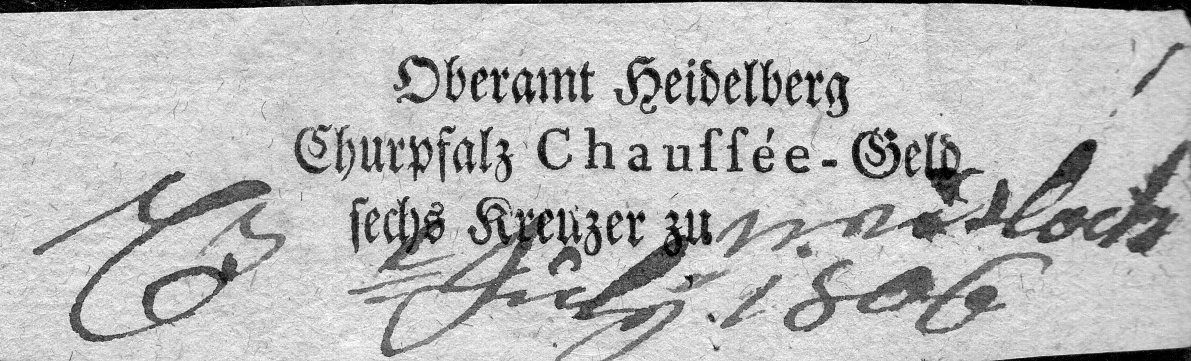 Oberamt Heidelberg
Churpfalz Chauſſée-Geld
ſechs Kreuzer zu
July 1806